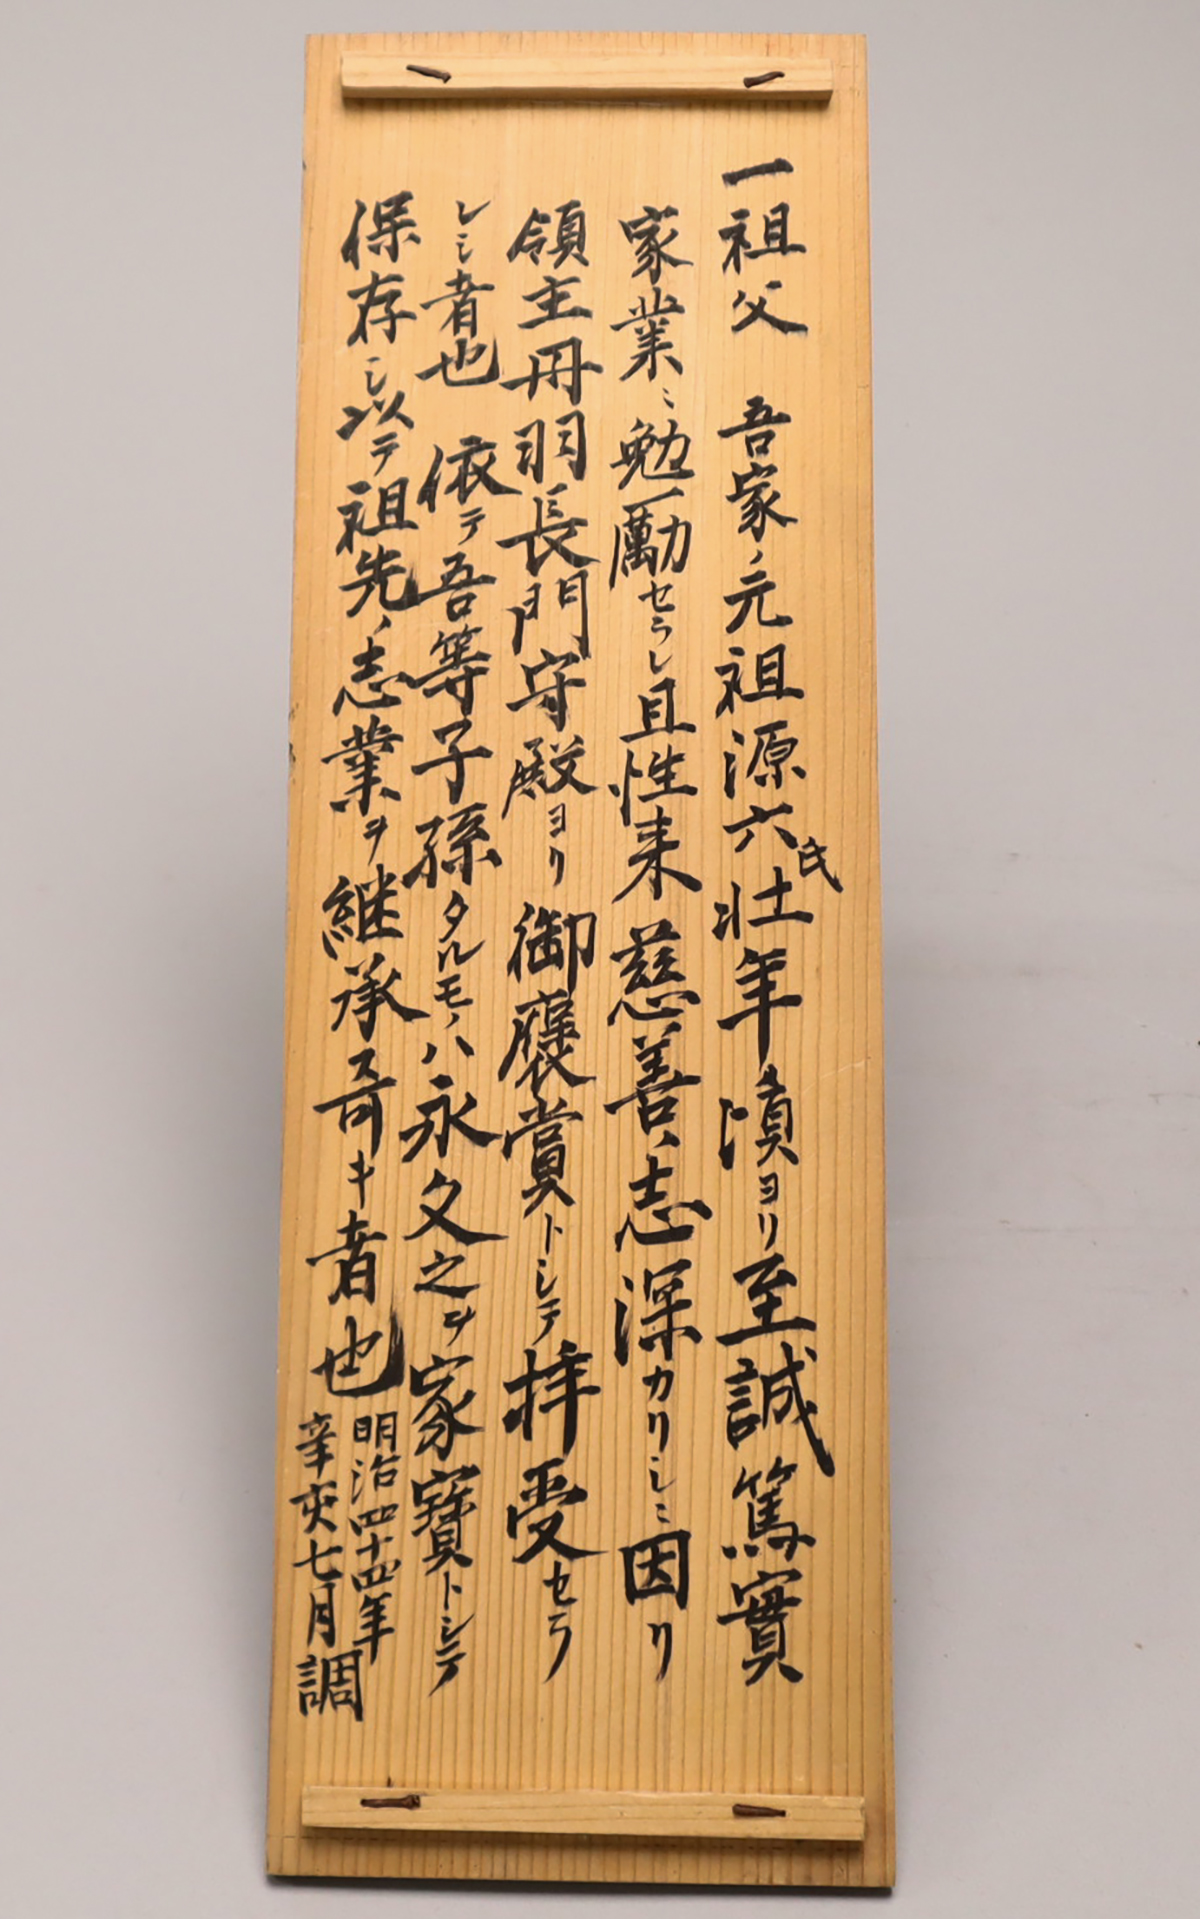 一祖父 吾家ノ元祖源六氏壮年ノ頃ヨリ至誠篤實
家業ニ勉励セラレ且性来慈善ノ志深カリシニ因リ
領主丹羽長門守殿ヨリ 御褒賞トシテ拝受セラ
レシ者也 依テ吾等子孫タルモノハ永久之ヲ家寶トシテ
保存シ以テ祖先ノ志業ヲ継承ス可キ者也
明治四十四年
辛亥七月調